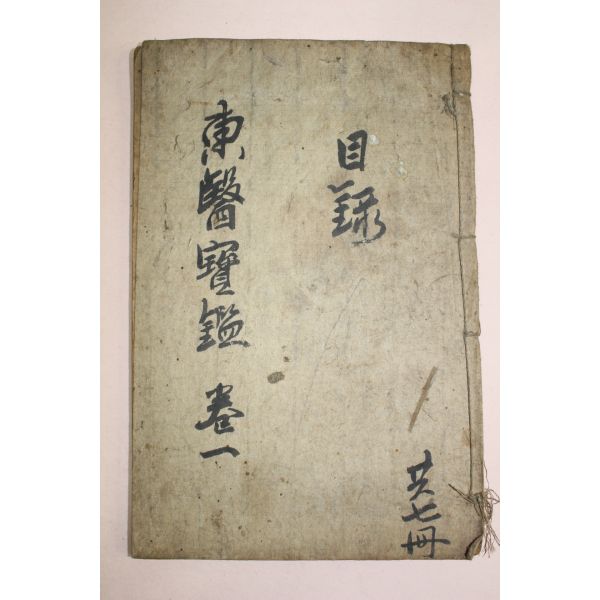 目錄
東醫寶鑑 卷一
共七冊